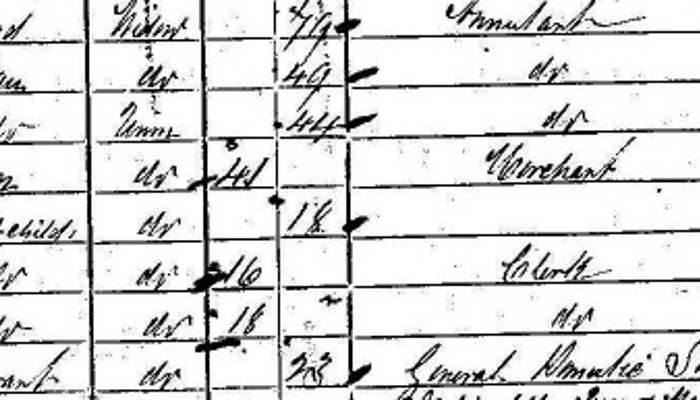 d Widow 79 Annuitant
do 49 do
Unm 44 do
do 41 Merchant
child do 18
do 16 Clerk
do 18 do
vant do 23 General Domestic S